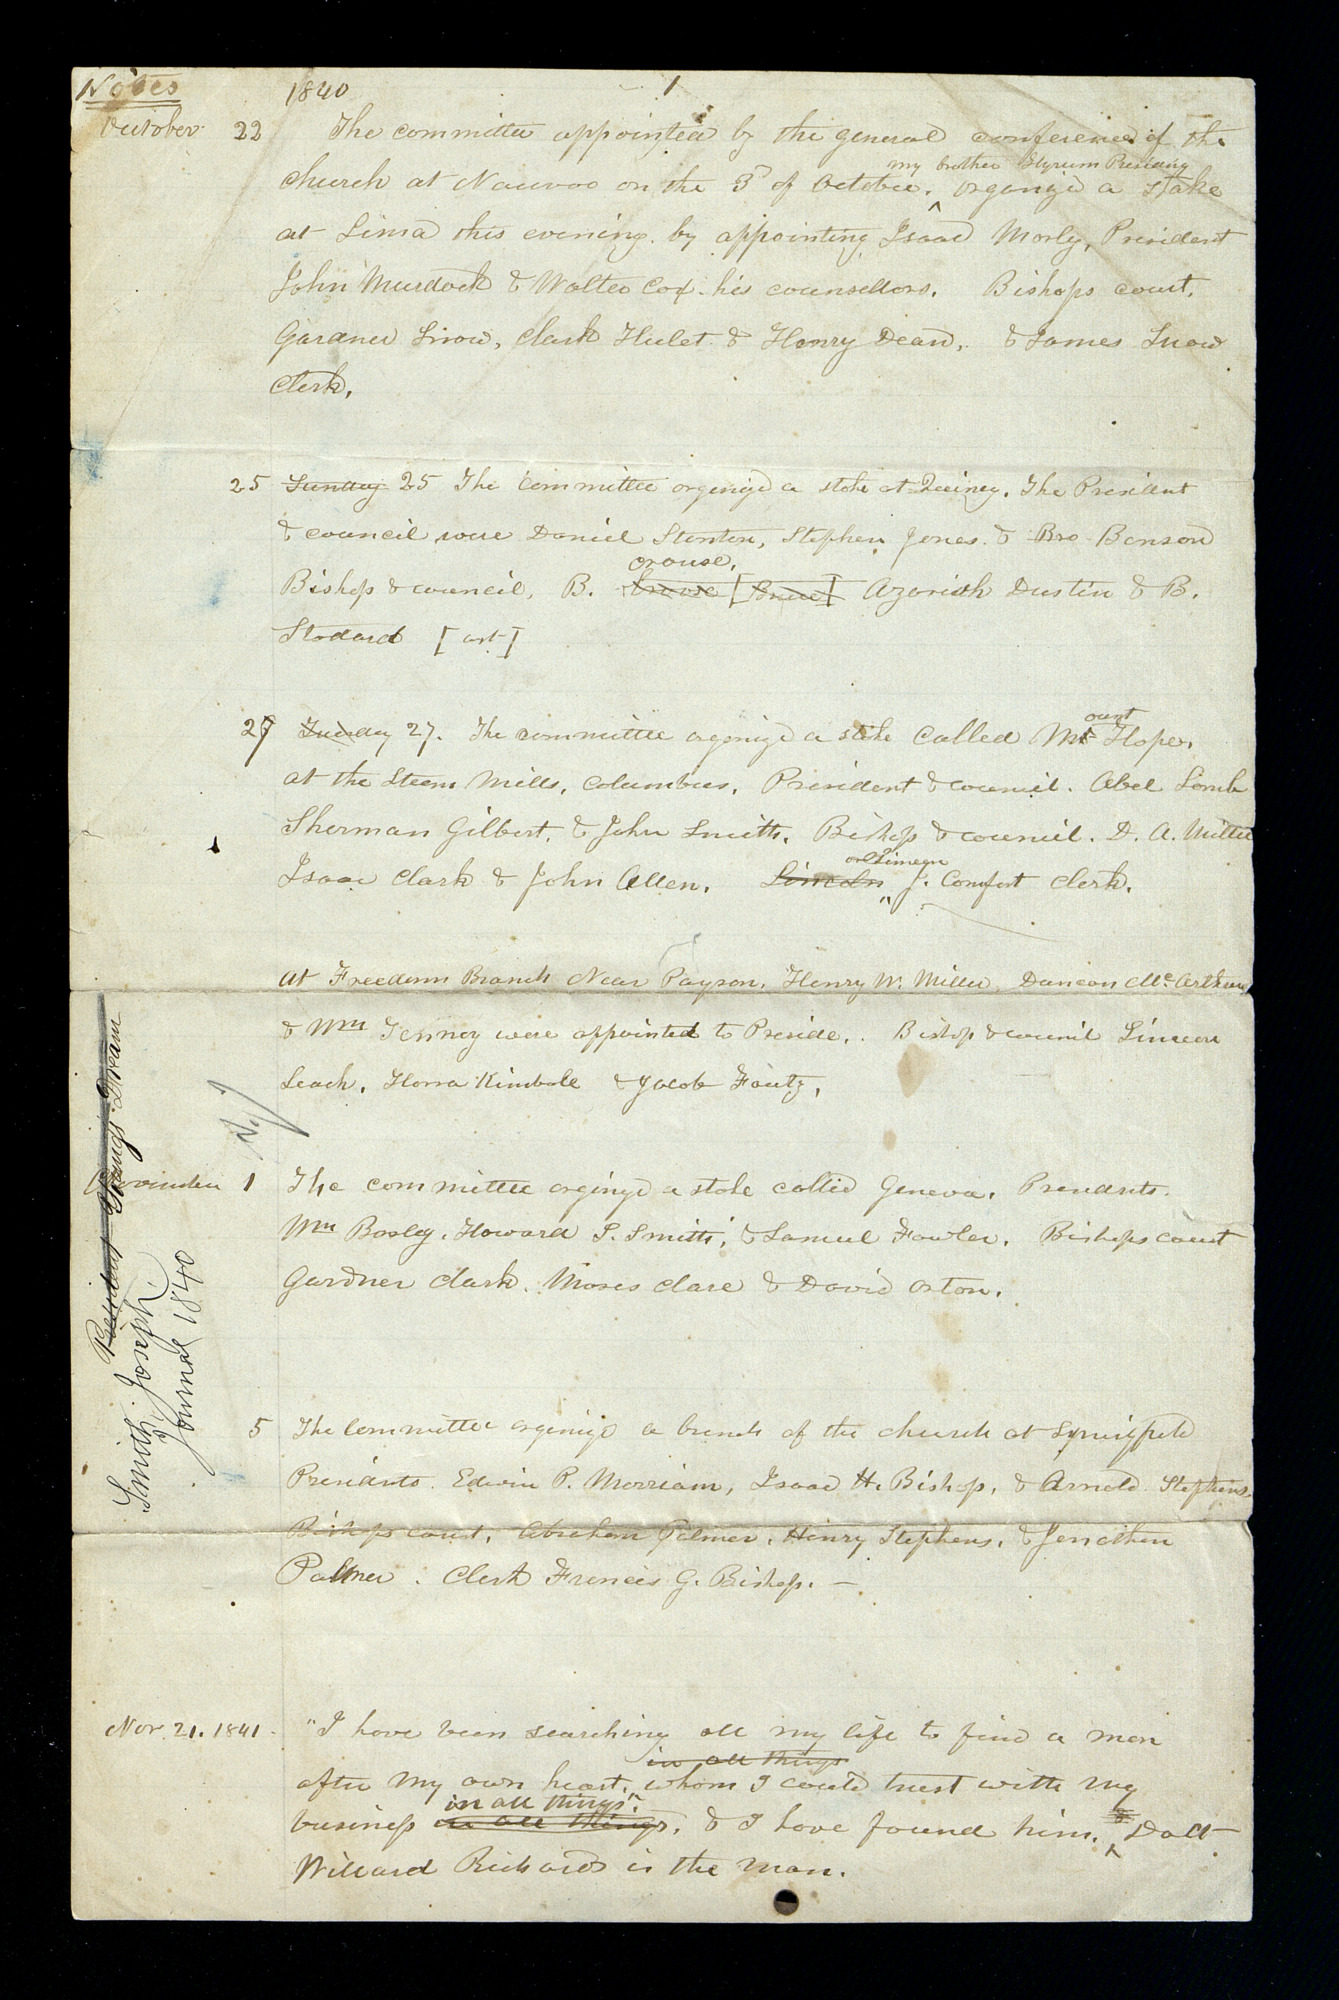 Notes 1840 1
October 22 The committee appointed by the general conference of the
my brother Hyrum Presiding
church at Nauvoo on the 3d of October, organized a stake
at Lima this evening. by appointing Isaac Morly, President
John Murdock & Walter Cox his counsellors. Bishops court,
Gardner Snow, Clark Hulet & Henry Dean, & James Snow
Clerk.
25 Sunday 25 The committee organized a stake at Quincy. The President
& council were Daniel Stanton, Stephen Jones & Bro Benson
crouse.
Bishop & council, B. Azariah Dustin & B.
Stodard [art]
27 Tuesday 27. The committee organized a stake called Mt Hope,
ount
at the Steam Mills, Columbus, President & council. Abel Lamb
Sherman Gilbert, & John Smith, Bishop & council. D. A. Miller
Isaac Clark & John Allen. Lincoln J. Comfort Clerk.
or Simeon
At Freedom Branch Near Payson, Henry W. Miller, Duncan Mc.Arthur
& Wm Tenney were appointed to Preside. Bishop & council Simeon
Leach, Horra Kimbole & Jacob Foutz,
November 1 The committee orginized a stake called Geneva. Presendnts.
Wm Bosley. Howard S. Smith, & Samuel Fowler. Bishops court
Gardner Clark. Moses Clare & David Orton.
5 The Committee orginized a branch of the church at Springfield
Presidnts. Edwin P. Merriam, Isaac H. Bishop, & Arnold Stephens
Bishops court, Abraham Palmer, Henry Stephens, & Jonathan
Palmer. Clerk Francis G. Bishop. —
Nov. 21. 1841. "I have been searching all my life to find a man
in all things
after my own heart, whom I could trust with my
in all things".
business in all things, & I have found him. Doct
Willard Richards is the man.
President Youngs Dream
Smith, Joseph
Journal 1840